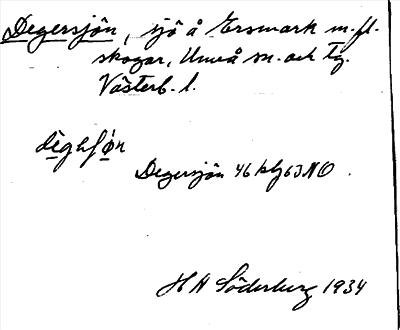 Degersjön, sjö å Ersmark m.fl.
skogar, Umeå sn. och tg.
Västerb. l.
Degersjön 46 63 NO.
H A Söderberg 1934